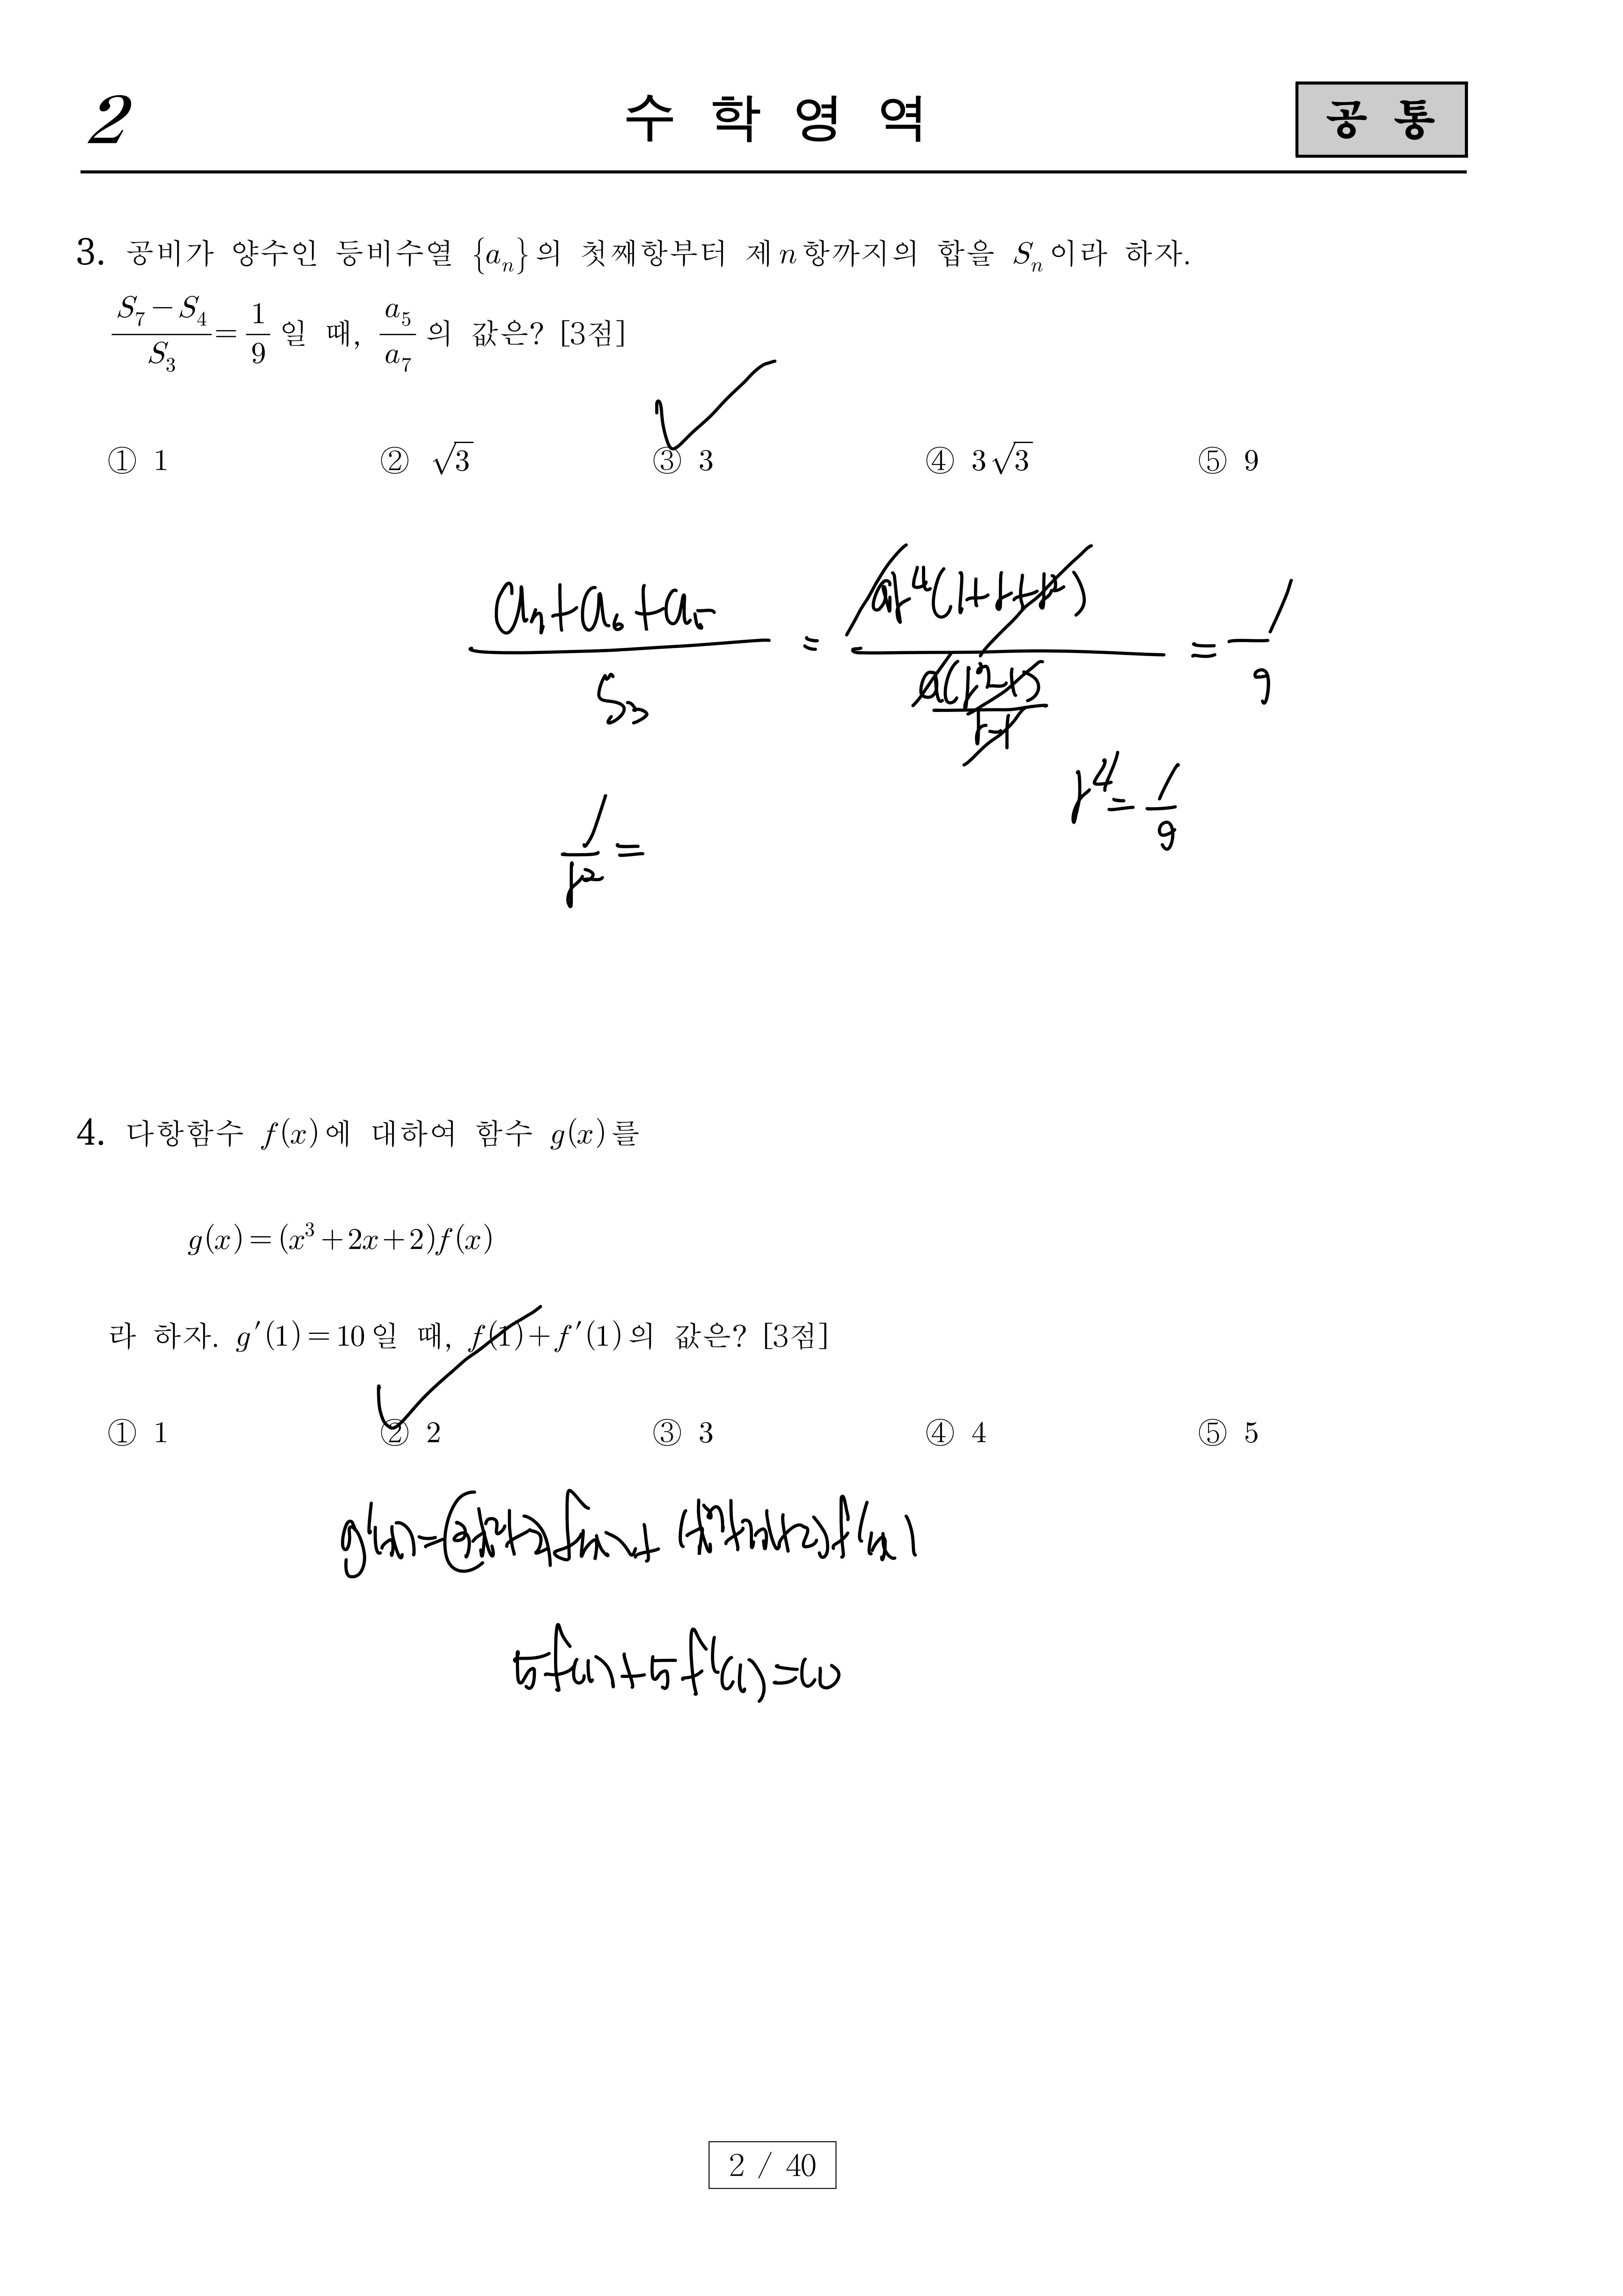 2 수 학 영 역 공 통
3. 공비가 양수인 등비수열 {aₙ}의 첫째항부터 제n항까지의 합을 Sₙ이라 하자.
(S₇−S₄)/S₃ = 1/9 일 때, a₅/a₇ 의 값은? [3점]
① 1 ② √3 ③ 3 ④ 3√3 ⑤ 9
(a₇+a₆+a₅)/S₃ = ar⁴(1+r+r²)/(a(r³-1)/(r-1)) = 1/9
r⁴=1/9
1/r² =
4. 다항함수 f(x)에 대하여 함수 g(x)를
g(x)=(x³+2x+2)f(x)
라 하자. g′(1)=10일 때, f(1)+f′(1)의 값은? [3점]
① 1 ② 2 ③ 3 ④ 4 ⑤ 5
g'(x)=(3x²+2)f(x)+(x³+2x+2)f'(x)
5f(1)+5f'(1)=10
2 / 40